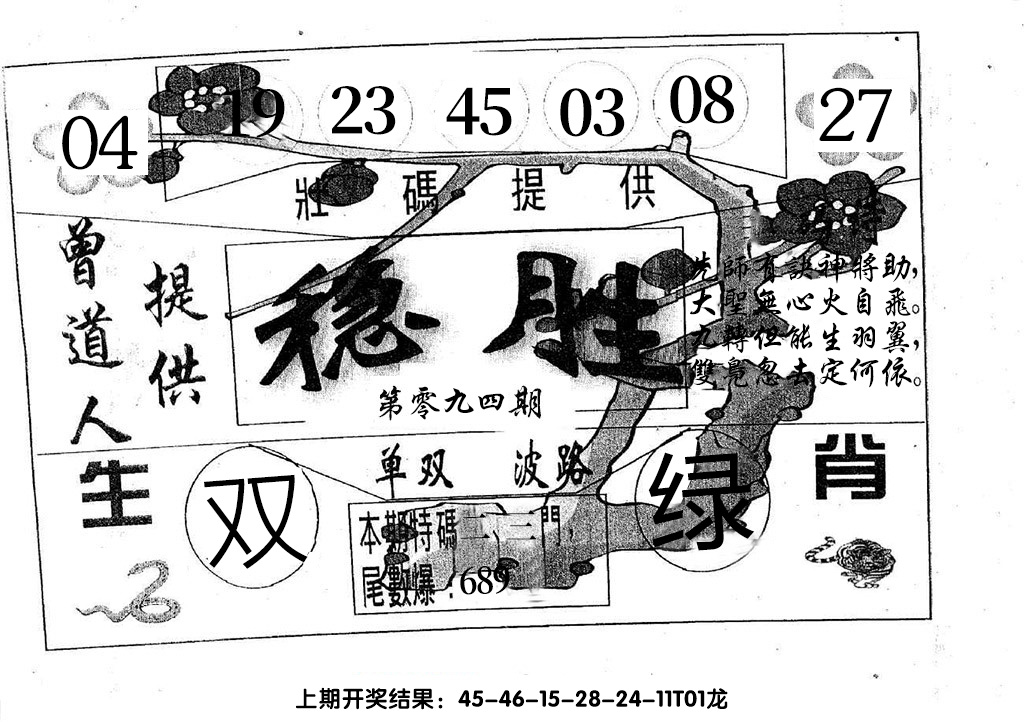 04 19 23 45 03 08 27
壯碼提供
曾道人
提供
稳胜
第零九四期
先師有訣神將助，
大聖無心火自飛。
九轉但能生羽翼，
雙鳧忽去定何依。
单双 波路
生肖
双
绿
本期特碼二、三門，
尾數爆：689
上期开奖结果：45-46-15-28-24-11T01龙